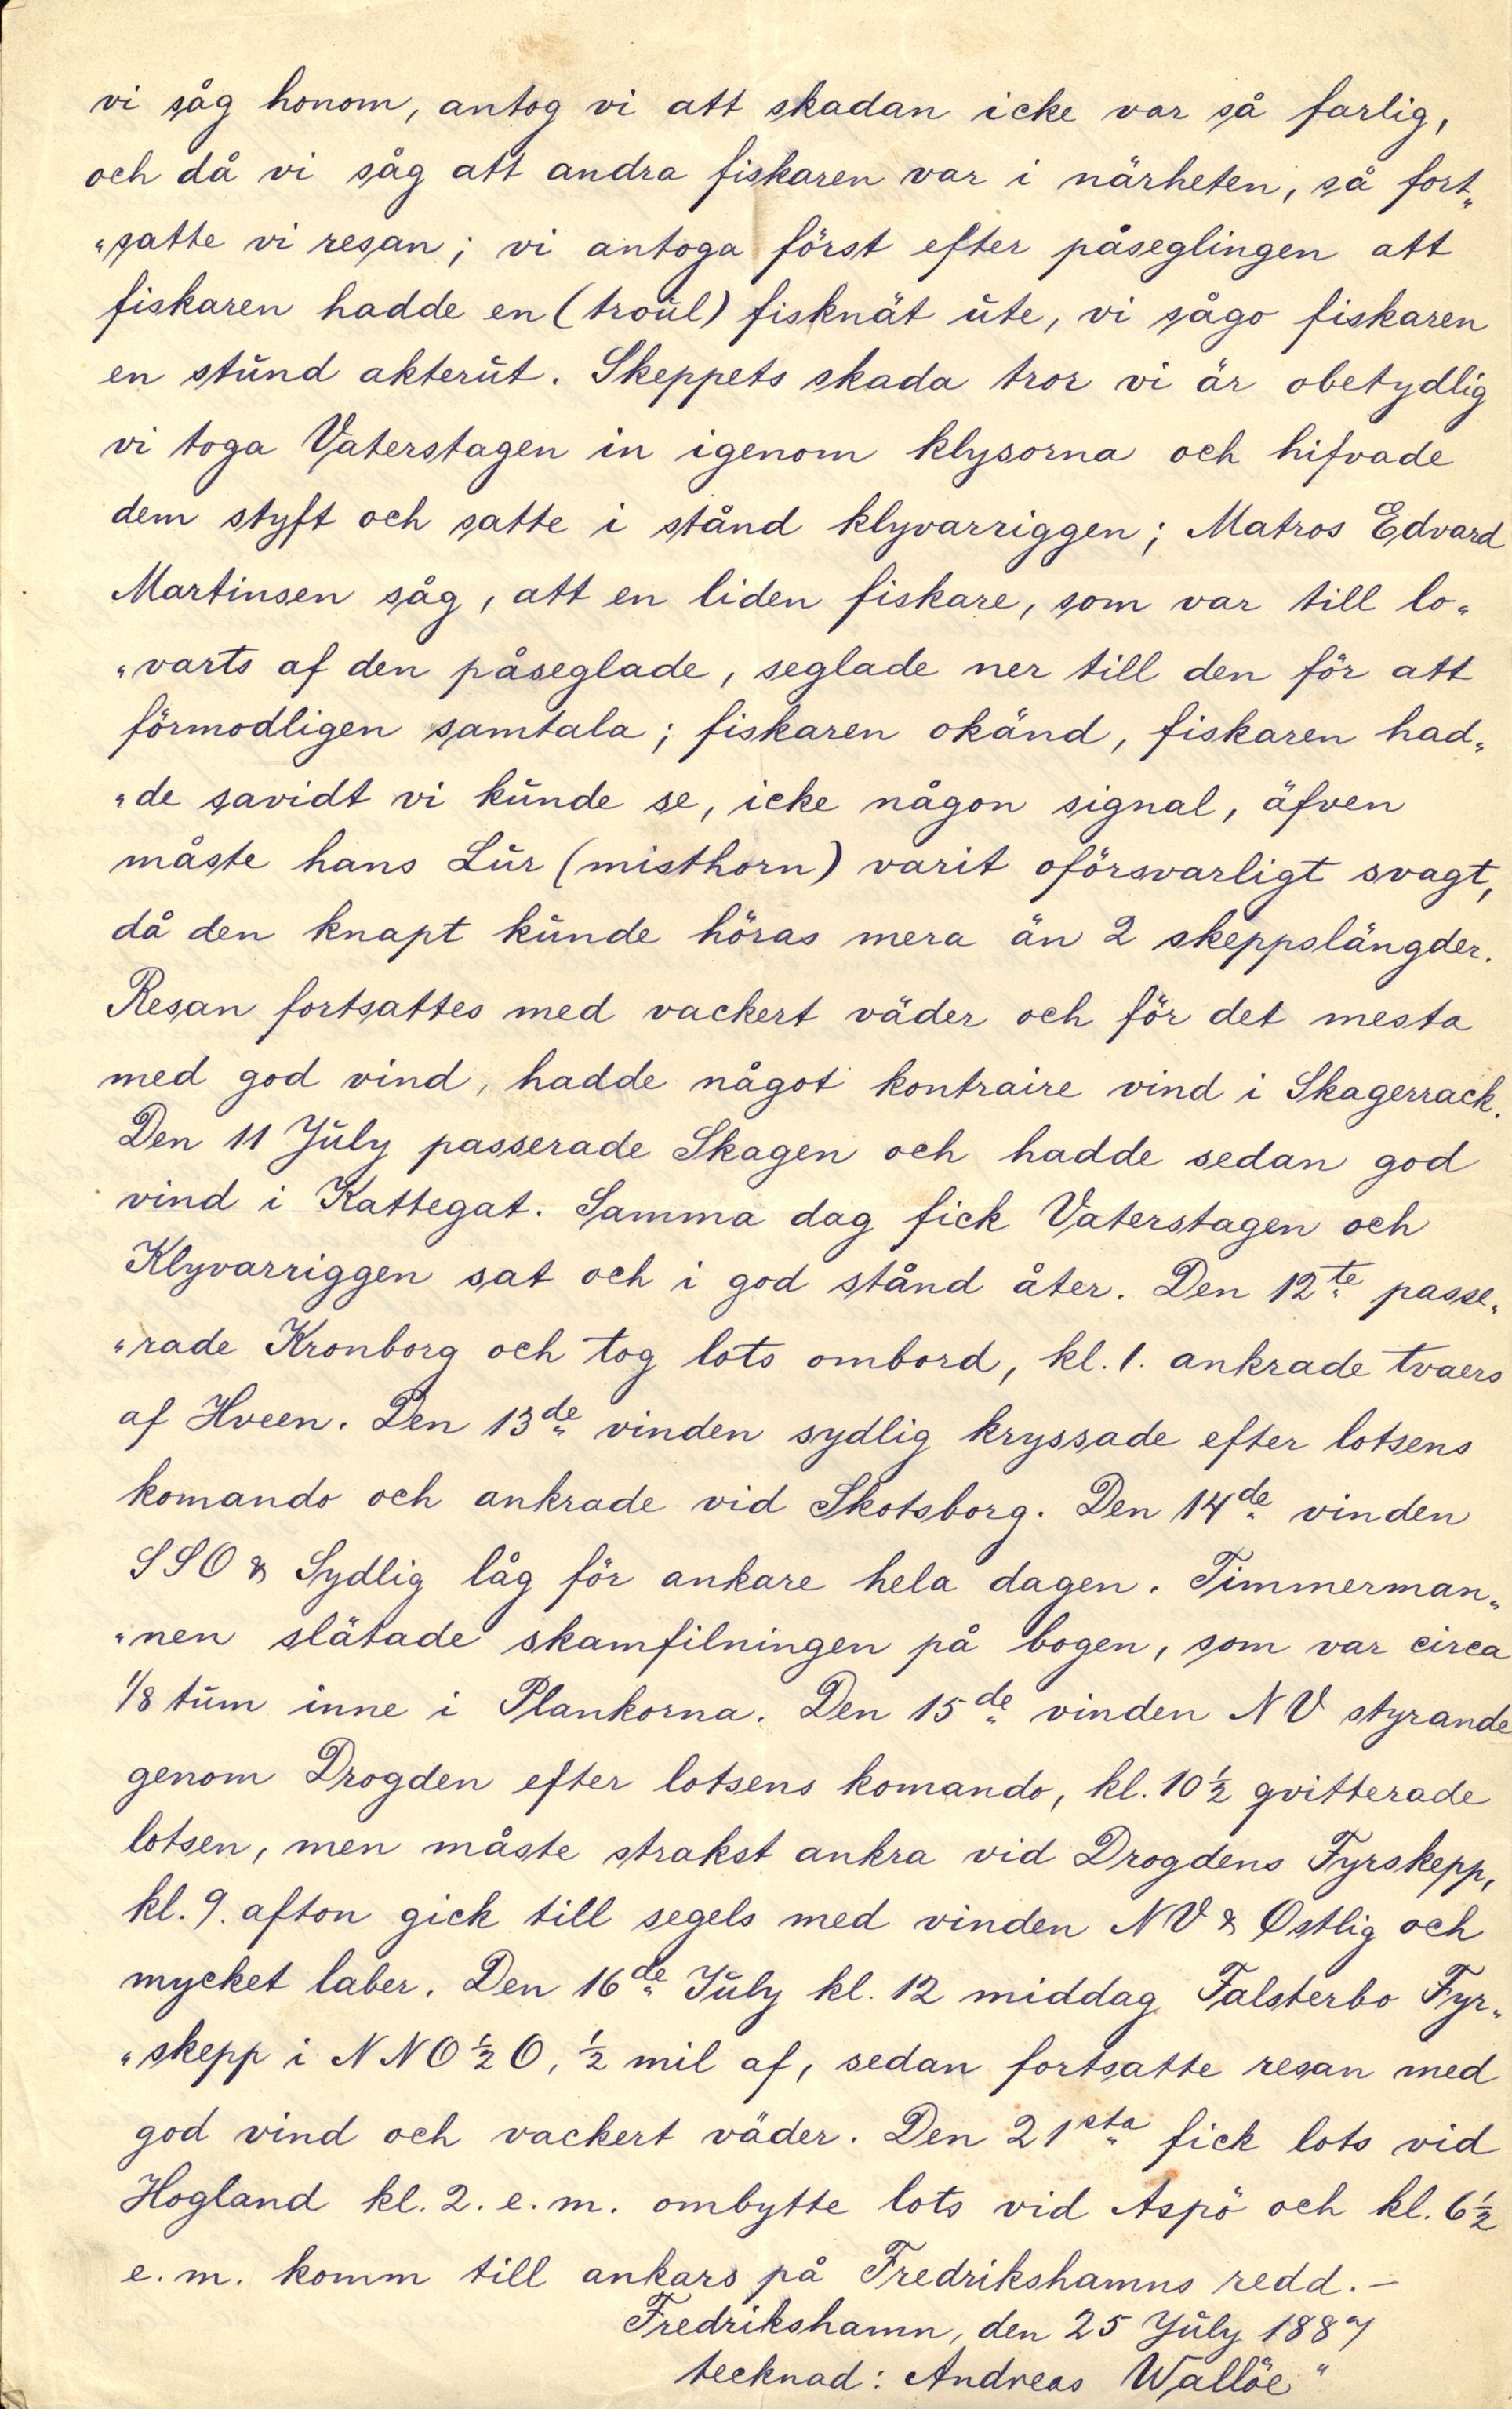 vi såg honom, antog vi att skadan icke var så farlig,
och då vi såg att andra fiskaren var i närheten, så fort„
„satte vi resan; vi antoga först efter påseglingen att
fiskaren hadde en (troul) fisknät ute, vi sågo fiskaren
en stund akterut. Skeppets skada tror vi är obetydlig
vi toga Vaterstagen in igenom klysorna och hifvade
dem styft och satte i stånd klyvarriggen; Matros Edvard
Martinsen såg, att en liden fiskare, som var till lo„
„varts af den påseglade, seglade ner till den för att
förmodligen samtala; fiskaren okänd, fiskaren had„
„de savidt vi kunde se, icke någon signal, äfven
måste hans Lur (misthorn) varit oförsvarligt svagt,
då den knapt kunde höras mera än 2 skeppslängder.
Resan fortsattes med vackert väder och för det mesta
med god vind, hadde något kontraire vind i Skagerrack.
Den 11 July passerade Skagen och hadde sedan god
vind i Kattegat. Samma dag fick Vaterstagen och
Klyvarriggen sat och i god stånd åter. Den 12te passe„
„rade Kronborg och tog lots ombord, kl. 1. ankrade tvaers
af Hveen. Den 13de vinden sydlig kryssade efter lotsens
komando och ankrade vid Skotsborg. Den 14de vinden
SSO & Sydlig låg för ankare hela dagen. Timmerman„
„nen slätade skamfilningen på bogen, som var circa
1/8 tum inne i Plankorna. Den 15de vinden NV styrande
genom Drogden efter lotsens komando, kl. 10½ qvitterade
lotsen, men måste strakst ankra vid Drogdens Fyrskepp,
kl. 9. afton gick till segels med vinden NV & Ostlig och
mycket laber. Den 16de July kl. 12 middag Falsterbo Fyr„
„skepp i NNO½O, ½ mil af, sedan fortsatte resan med
god vind och vackert väder. Den 21sta fick lots vid
Hogland kl. 2. e. m. ombytte lots vid Aspö och kl. 6½
e. m. komm till ankars på Fredrikshamns redd. –
Fredrikshamn, den 25 July 1887
tecknad: Andreas Wallöe"